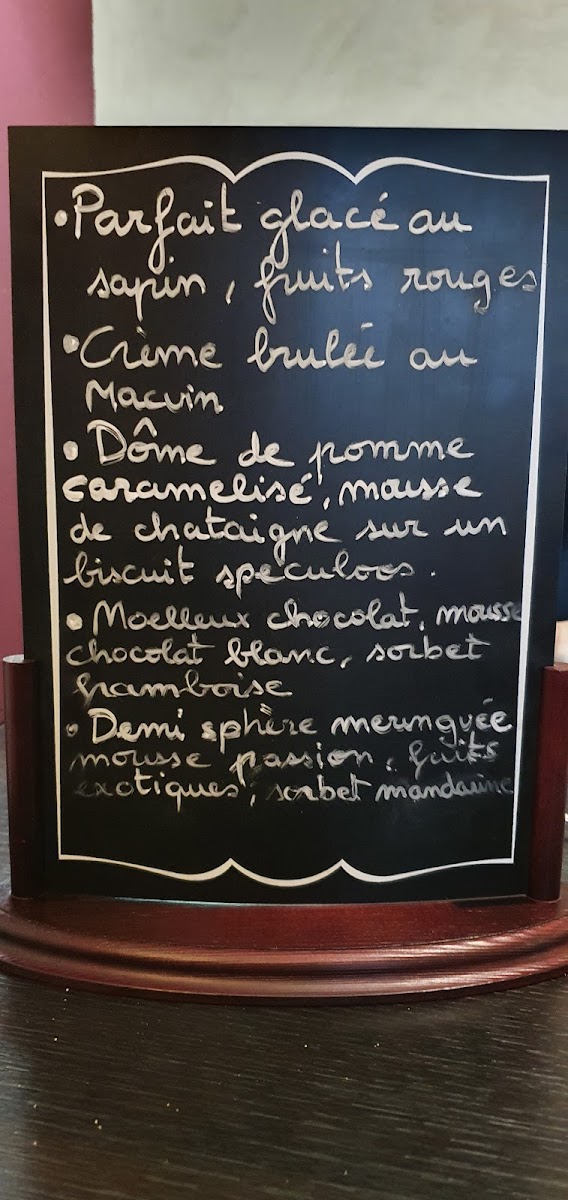 •Parfait glacé au
sapin, fruits rouges
•Crème brulée au
Macvin
• Dôme de pomme
caramelisé, mousse
de chataigne sur un
biscuit speculoos.
• Moelleux chocolat, mousse
chocolat blanc, sorbet
framboise
• Demi sphère meringuée
mousse passion, fuits
exotiques, sorbet mandarine